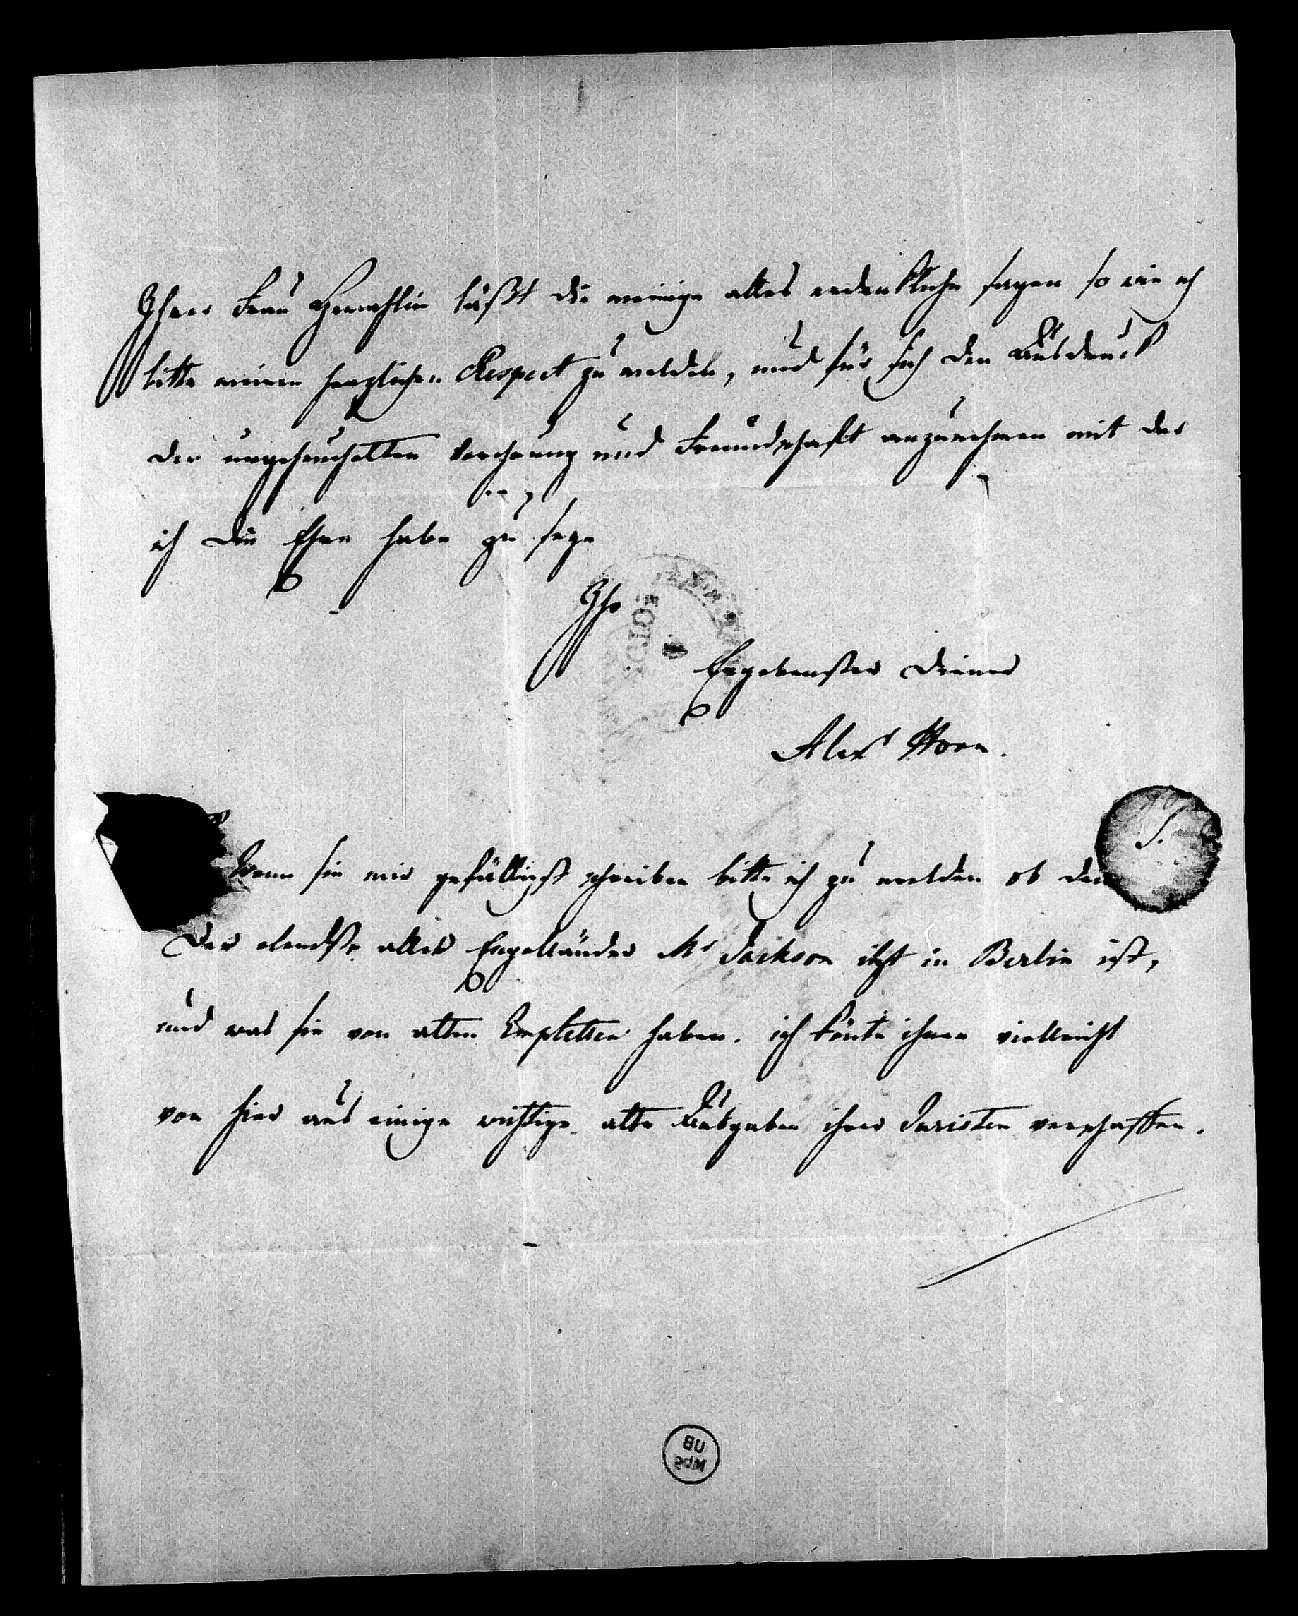 Ihrer Frau Gemahlin läßt die meinige alles erdenkliche sagen so wie ich
bitte meinen herzlichen Respect zu melden, und für sich den Ausdruck
der ungeheuchelten Verehrung und Freundschaft anzunehmen mit der
ich die Ehre habe zu seyn
Ihr
Ergebenster Diener
Alexr Horn.
Wenn sie mir gefälligst schreiben bitte ich zu melden ob denn
der elendste aller Engelländer Mr Jackson itzt in Berlin ist,
und was sie von alten Emplettes haben. ich könte ihnen vielleicht
von hier aus einige wichtige alte Ausgaben ihrer Juristen verschaffen.
UB
Mbg